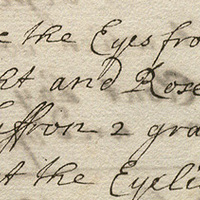 the Eyes fro
and Rose
ffron 2 gra
the Eyeli